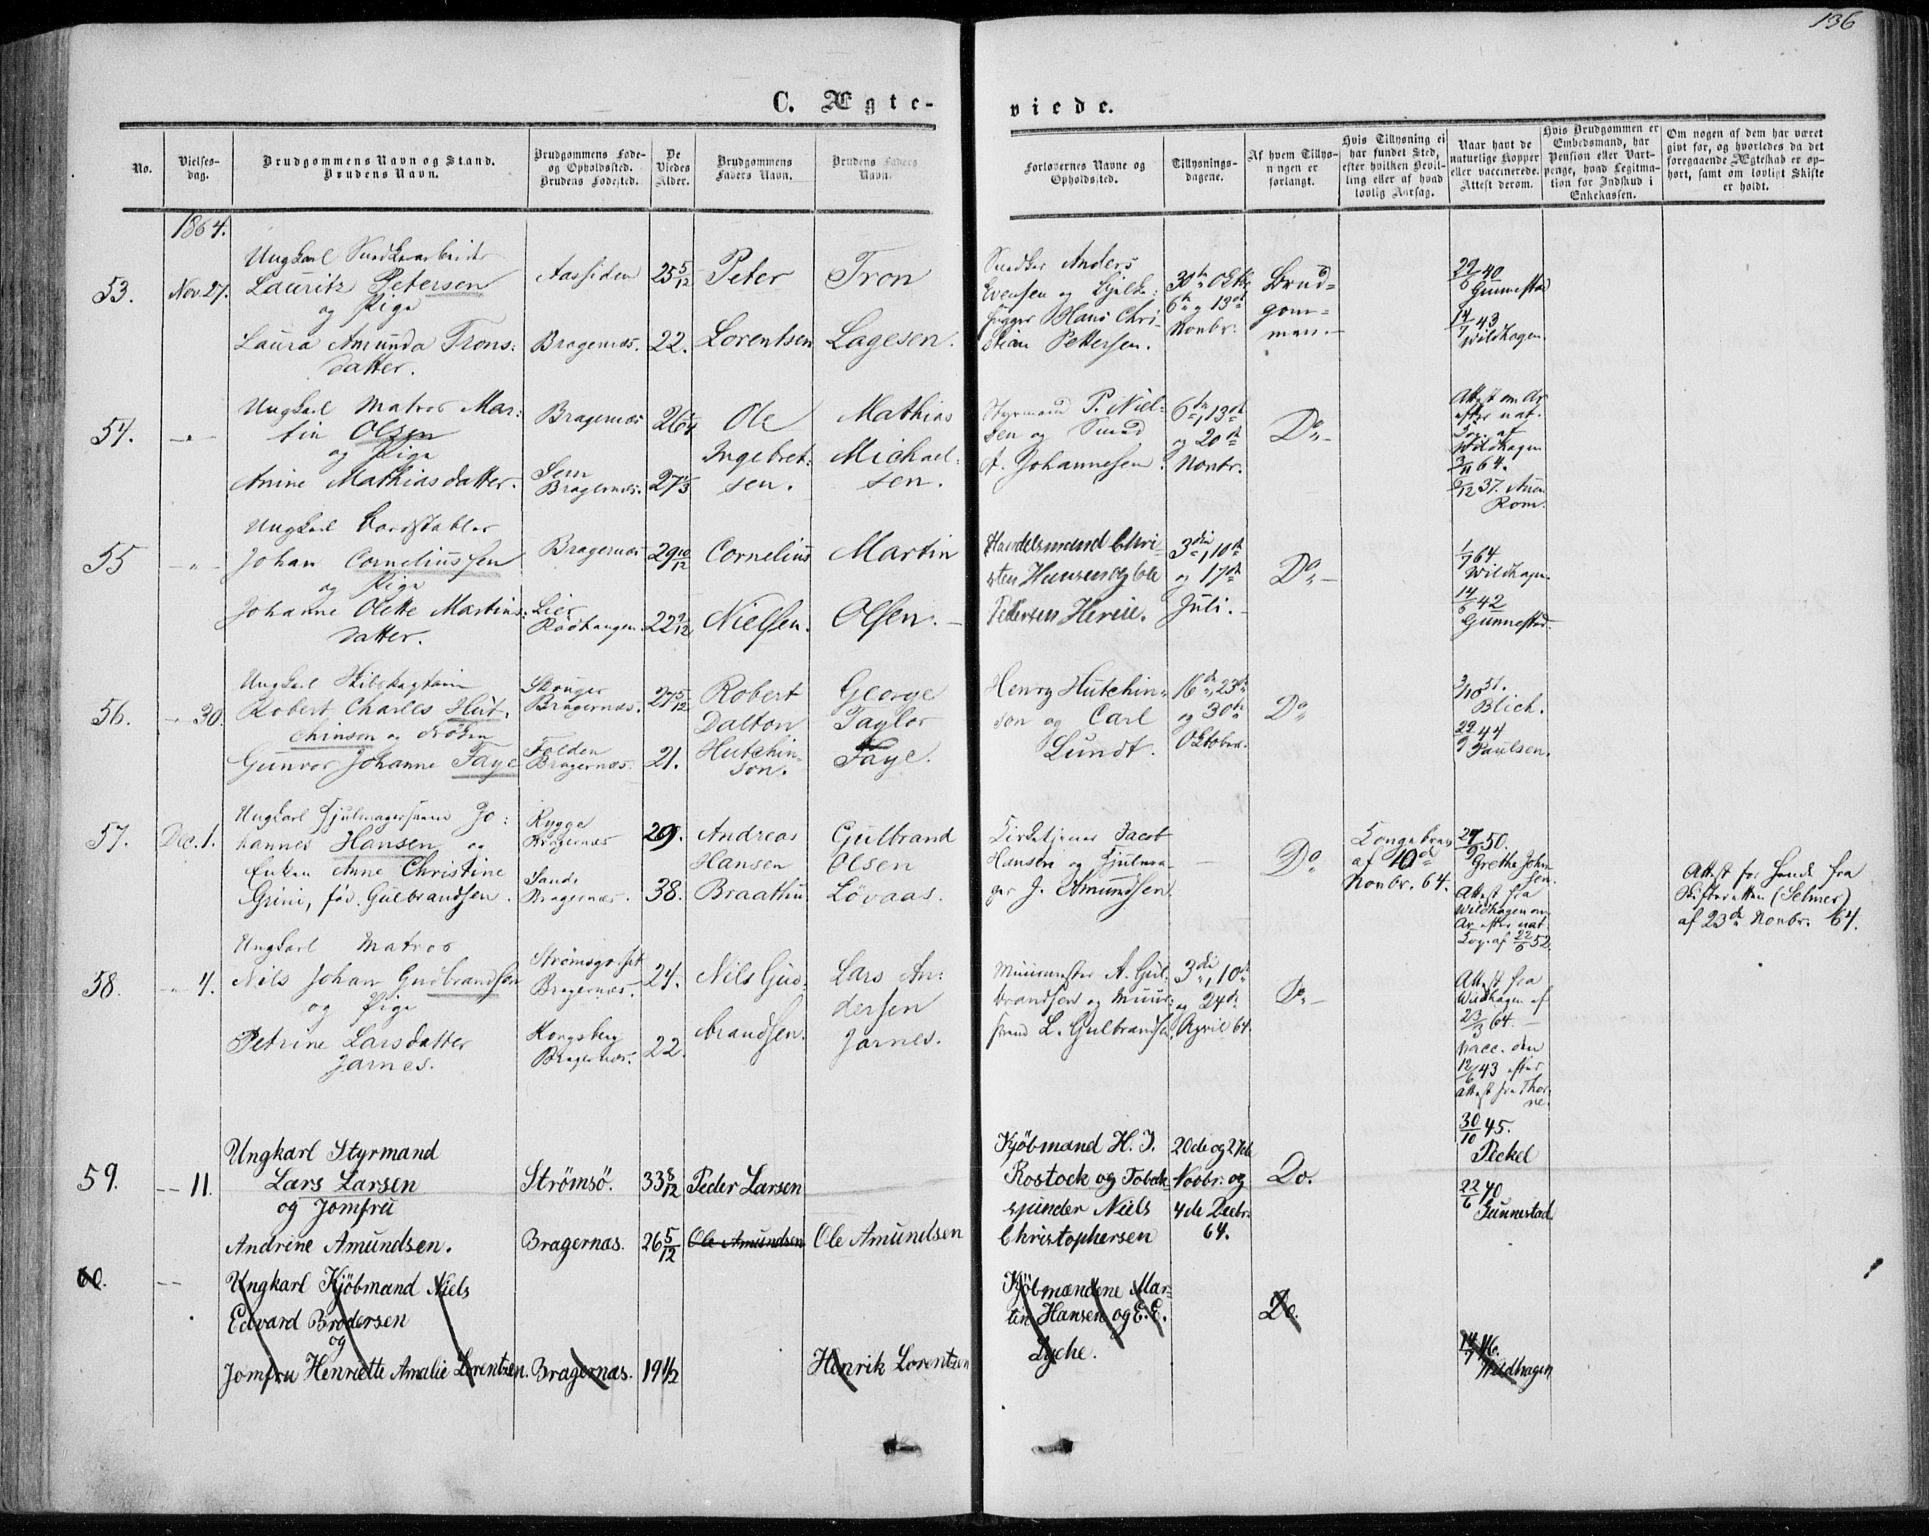 136
C. Ægte-
viede.
No.
Vielses-
dag.
Brudgommens Navn og Stand.
Brudens Navn.
Brudgommens Føde-
og Opholdssted.
Brudens Fødested.
De
Viedes
Alder.
Brudgommens
Faders Navn.
Brudens Faders
Navn.
Forlovernes Navne og
Opholdssted.
Tillysnings-
dagene.
Af hvem Tillys-
ningen er
forlangt.
Hvis Tillysning ei
har fundet Sted,
efter hvilken Bevil-
ling eller af hvad
lovlig Aarsag.
Naar havt de
naturlige Kopper
eller vaccinerede.
Attest derom.
Hvis Brudgommen er
Embedsmand, har
Pension eller Vart-
penge, hvad Legitima-
tion for Indskud i
Enkekassen.
Om nogen af dem har været
givt før, og hvorledes da det
foregaaende Ægteskab er op-
hørt, samt om lovligt Skifte
er holdt.
1864.
53. Nov. 27.
Ungkarl
Lauritz Petersen
og Pige
Laura Amunda Trons:
datter.
Aassiden
Bragernæs.
25 5/12
22.
Peter
Lorentsen
Tron
Lagesen.
Anders
Evensen og
Hans Chri-
stian Pettersen.
30te Oktbr.
6te og 13de
Novbr.
Brud=
gom=
men.
29/6 40
Gunnestad
14/7 43
Wildhagen.
54. -"-
Ungkarl Matros Mar:
tin Olsen
og Pige
Anine Mathiasdatter.
Bragernæs
Sem
Bragernæs.
Ole
Ingebret:
sen.
Mathias
Michael:
sen.
Styrmand P. Niel-
sen og Smed
A. Johannesen.
6te, 13de
og 20de
Novbr.
Do.
Attest om Ar
efter nat.
Kop. af
Wildhagen
3/11 64.
37.
55 -"-
Ungkarl Bordstabler
Johan Corneliussen
og Pige
Johanne Olette Martins:
datter.
Bragernæs
Lier
Rødtangen
29 10/12
22 9/12
Cornelius
Nielsen.
Martin
Olsen.
Handelsmand Chri-
sten Hansen og Ole
Pedersen
3die, 10de
og 17de
Juli.
Do.
1/7 64
Wildhagen.
14/6 42
Gunnestad.
56. -" 30.
Ungkarl Skibskaptain
Robert Charles Hut-
chinson og Frøken
Gunvor Johanne Faye
Skouger
Bragernæs.
Folden
Bragernæs.
27 5/12
21.
Robert
Dalton
Hutchin-
son.
George
Taylor
Faye.
Henry Hutchin-
son og Carl
Lundt.
16de, 23de
og 30te
Oktober.
Do
3/10 37.
Blich.
29/9 44
Paulsen.
57. Dec. 1.
Ungkarl Hjulmagersvend Jo:
hannes Hansen og
Enken Anne Christine
Grini, fød. Gulbrandsen.
Rygge
Bragernæs
Sande
Bragernæs.
29.
38.
Andreas
Hansen
Braathen
Gulbrand
Olsen
Løvaas.
Kirketjener Jacob
Hansen og Hjulma-
ger J. Amundsen.
Do
Kongebrev
af 10de
Novbr. 64.
50.
Grethe John-
sen.
Attest fra
Wildhagen om
Ar efter nat
Kop. af 22/6 52.
Attest for hende fra
Skifteretten (Selmer)
af 23de Novbr. 64.
58. -" 4.
Ungkarl Matros
Nils Johan Gudbrandsen
og Pige
Petrine Larsdatter
Jarnes.
Bragernæs.
Kongsberg
Bragernæs.
24.
22.
Nils Gud-
brandsen.
Lars An:
dersen
Jarnes.
Muurmester A. Gul-
brandsen og Muur-
svend L. Gulbrandsen
3die, 10de
og 24de
April 64.
Do.
Attest fra
Wildhagen af
23/3 64.
Vacc. den
12/6 43 efter
attest fra Thor-
ne.
59. -- 11.
Ungkarl Styrmand
Lars Larsen
og Jomfru
Andrine Amundsen.
Strømsö.
Bragernæs.
33 8/12
26 5/12
Peder Larsen
Ole Amundsen
Ole Amundsen
Kjöbmand H. J.
Rostock og Tobak-
spinder Niels
Christophersen
20de og 27de
Novbr. og
4de Decbr.
64.
Do.
30/10 45.
Pickel
22/6 40
Gunnestad
60. --
Ungkarl Kjöbmand Niels
Edvard Brodersen
og
Jomfru Henriette Amalie Lorentzen.
Bragernæs.
19 1/2
Henrik Lorentzen
Kjöbmændene Mar-
tin Hansen og E. E.
Lyche.
Do.
14/7 46.
Wildhagen